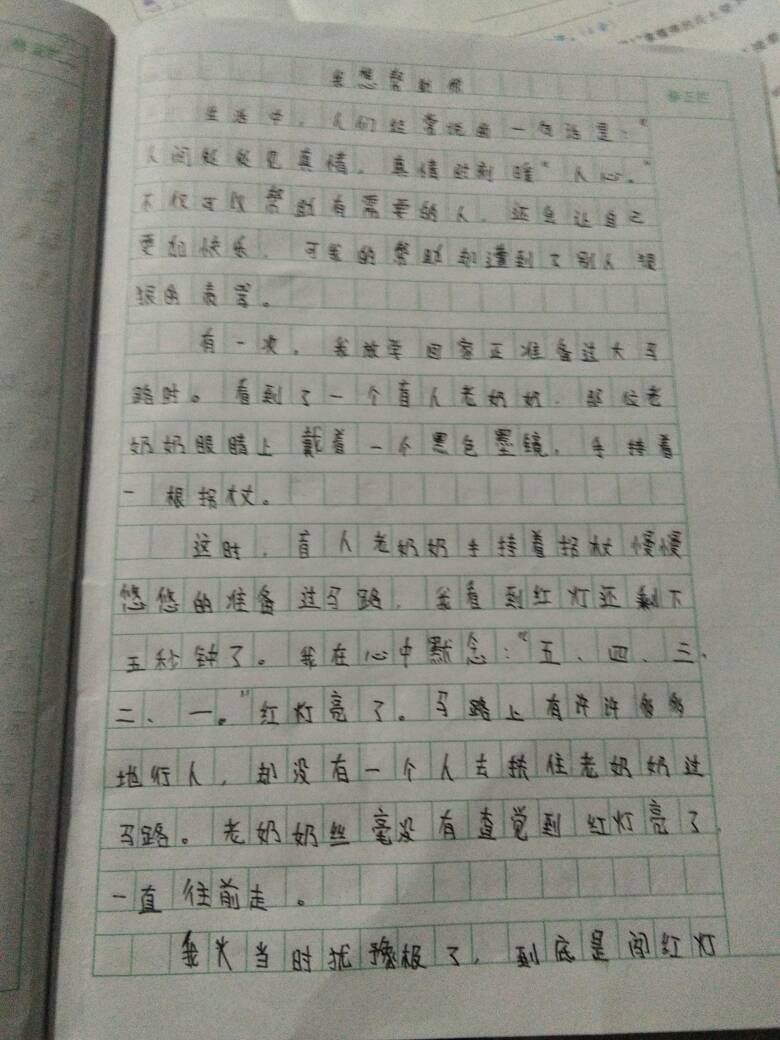 我想帮助你
生活中，人们经常说的一句话是："
人间处处见真情，真情时刻暖"人心。"
不仅可以帮助有需要的人，还会让自己
更加快乐，可我的帮助却遭到了别人狠
狠的责骂。
有一次，我放学回家正准备过大马
路时。看到了一个盲人老奶奶，那位老
奶奶眼睛上戴着一个黑色墨镜，手持着
一根拐杖。
这时，盲人老奶奶手持着拐杖慢慢
悠悠的准备过马路，我看到红灯还剩下
五秒钟了。我在心中默念："五、四、三、
二、一。"红灯亮了。马路上有许许多多
地行人，却没有一个人去扶住老奶奶过
马路。老奶奶丝毫没有查觉到红灯亮了，
一直往前走。
我当时犹豫极了，到底是闯红灯